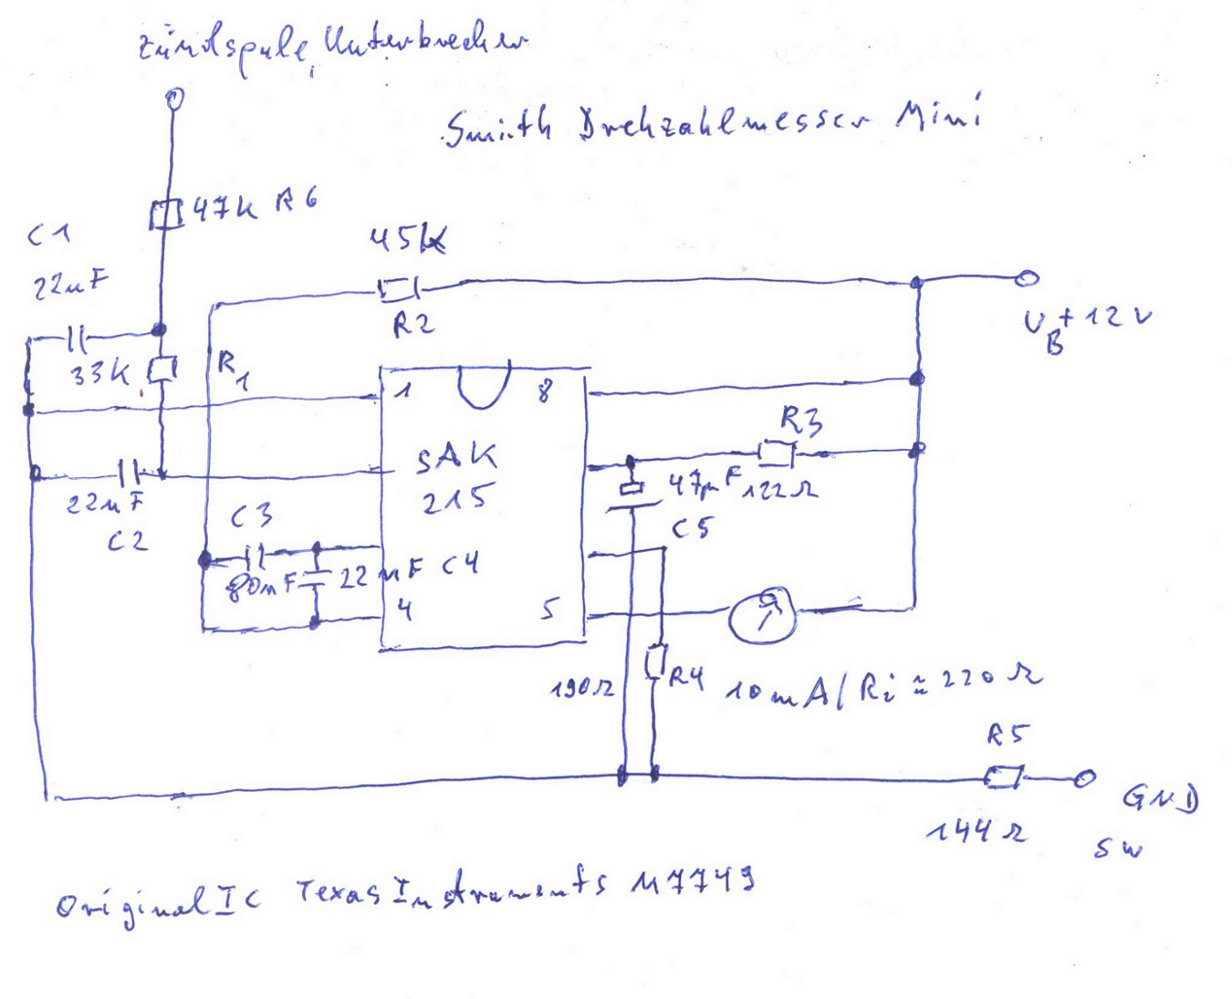 Zündspule, Unterbrecher
Smith Drehzahlmesser Mini
47k R6
C1
22nF
45k
R2
UB +12V
33K
R1
1
8
R3
SAK
215
47µF
122Ω
C5
22nF
C2
C3
80nF
22nF C4
4
5
190Ω
R4
10mA/Ri ≈ 220Ω
R5
144Ω
GND
SW
Original IC Texas Instruments